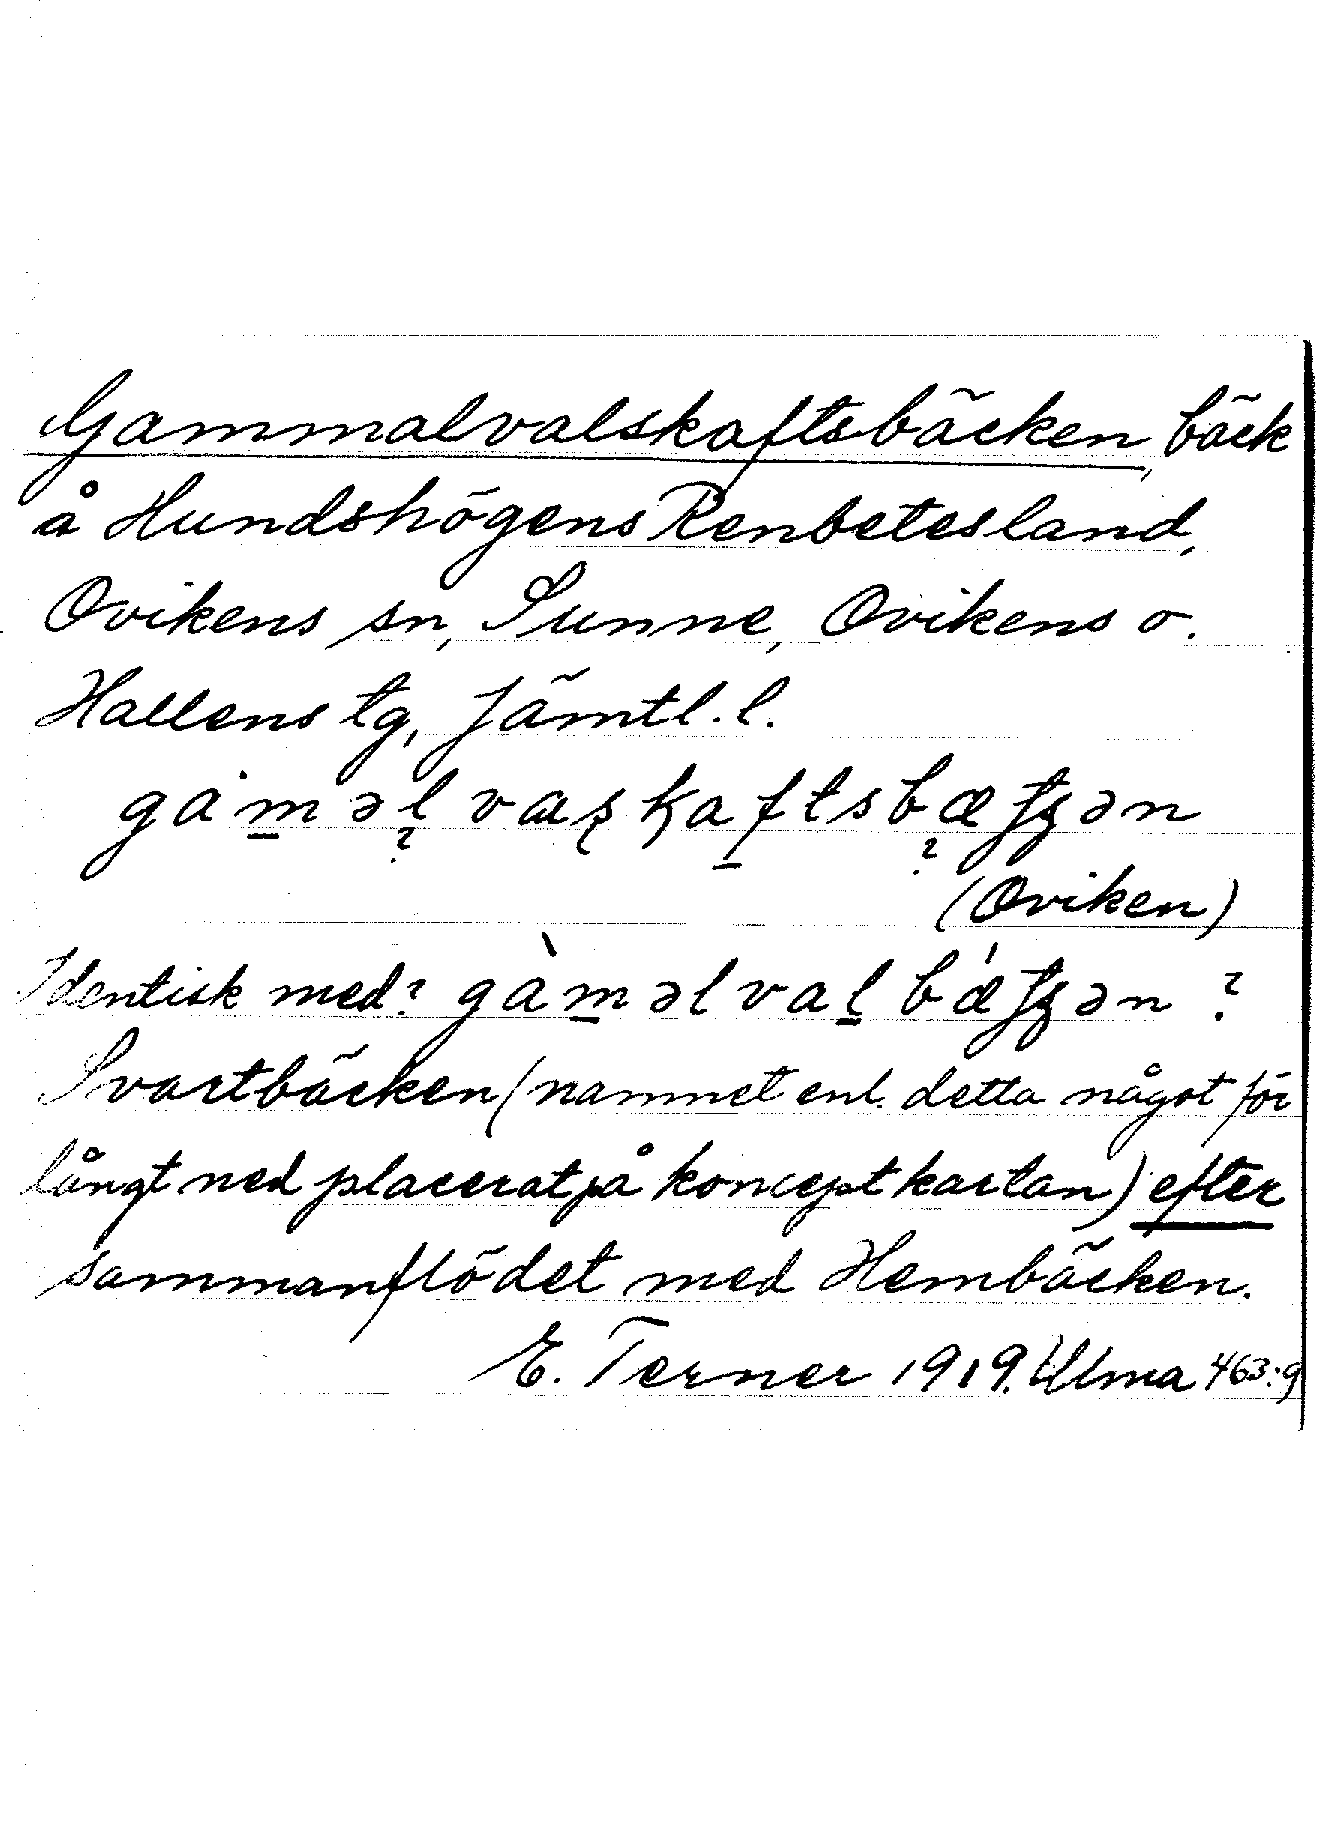 Gammalvalskaftsbäcken, bäck
å Hundshögens Renbetesland,
Ovikens sn, Sunne, Ovikens o.
Hallens tg, Jämtl. l.
(Oviken)
Identisk med? gàm̲əlval̲bǽʃʂən ?
Svartbäcken (namnet enl. detta något för
långt ned placerat på konceptkartan) efter
sammanflödet med Hembäcken.
E. Terner 1919. Ulma 463:9